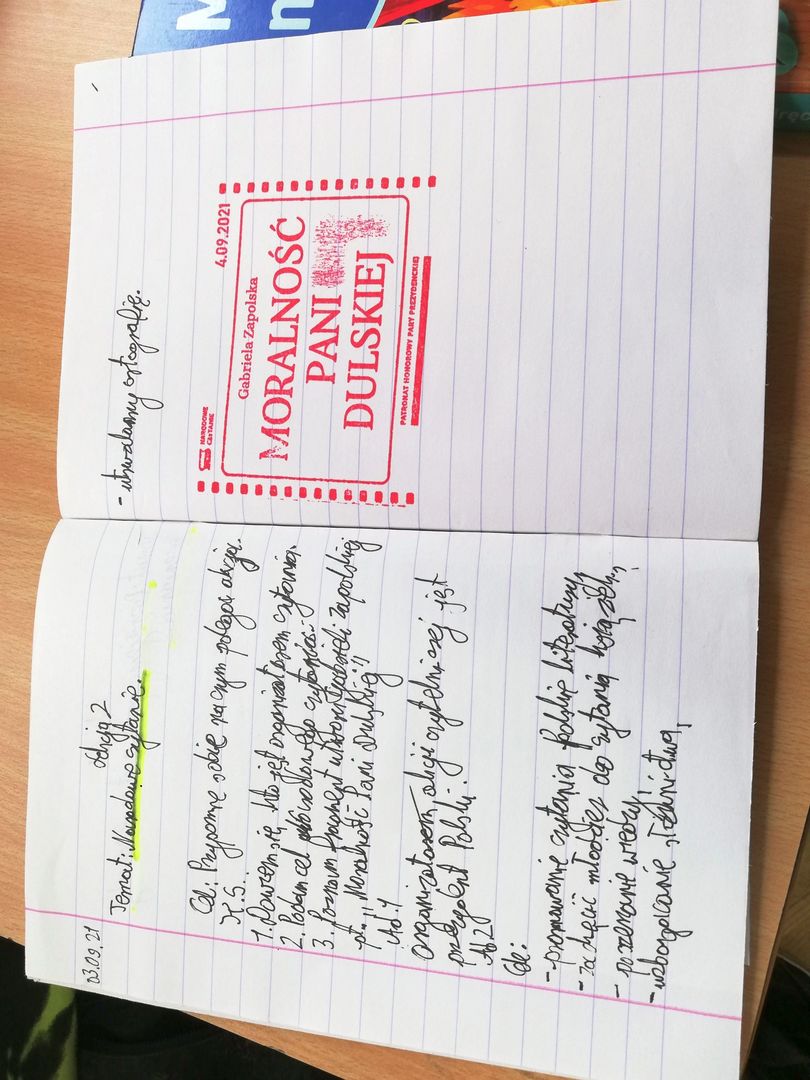 03.09.21
Lekcja 2
Temat: Narodowe czytanie.
Cel: Przypomnę sobie na czym polega akcja.
K.S.:
1. Dowiem się, kto jest organizatorem czytania.
2. Podam cel czytania.
3. Poznam fragment utworu Gabrieli Zapolskiej
pt. ,,Moralność Pani Dulskiej''
Ad. 1
Organizatorem akcji czytelniczej jest
prezydent Polski.
Ad. 2
Cele:
- promowanie czytania Polskiej literatury
- zachęcić młodzież do czytania książek,
- poszerzanie wiedzy
- wzbogacanie słownictwa,
- utrwalamy ortografię.
NARODOWE
CZYTANIE
4.09.2021
Gabriela Zapolska
MORALNOŚĆ
PANI
DULSKIEJ
PATRONAT HONOROWY PARY PREZYDENCKIEJ